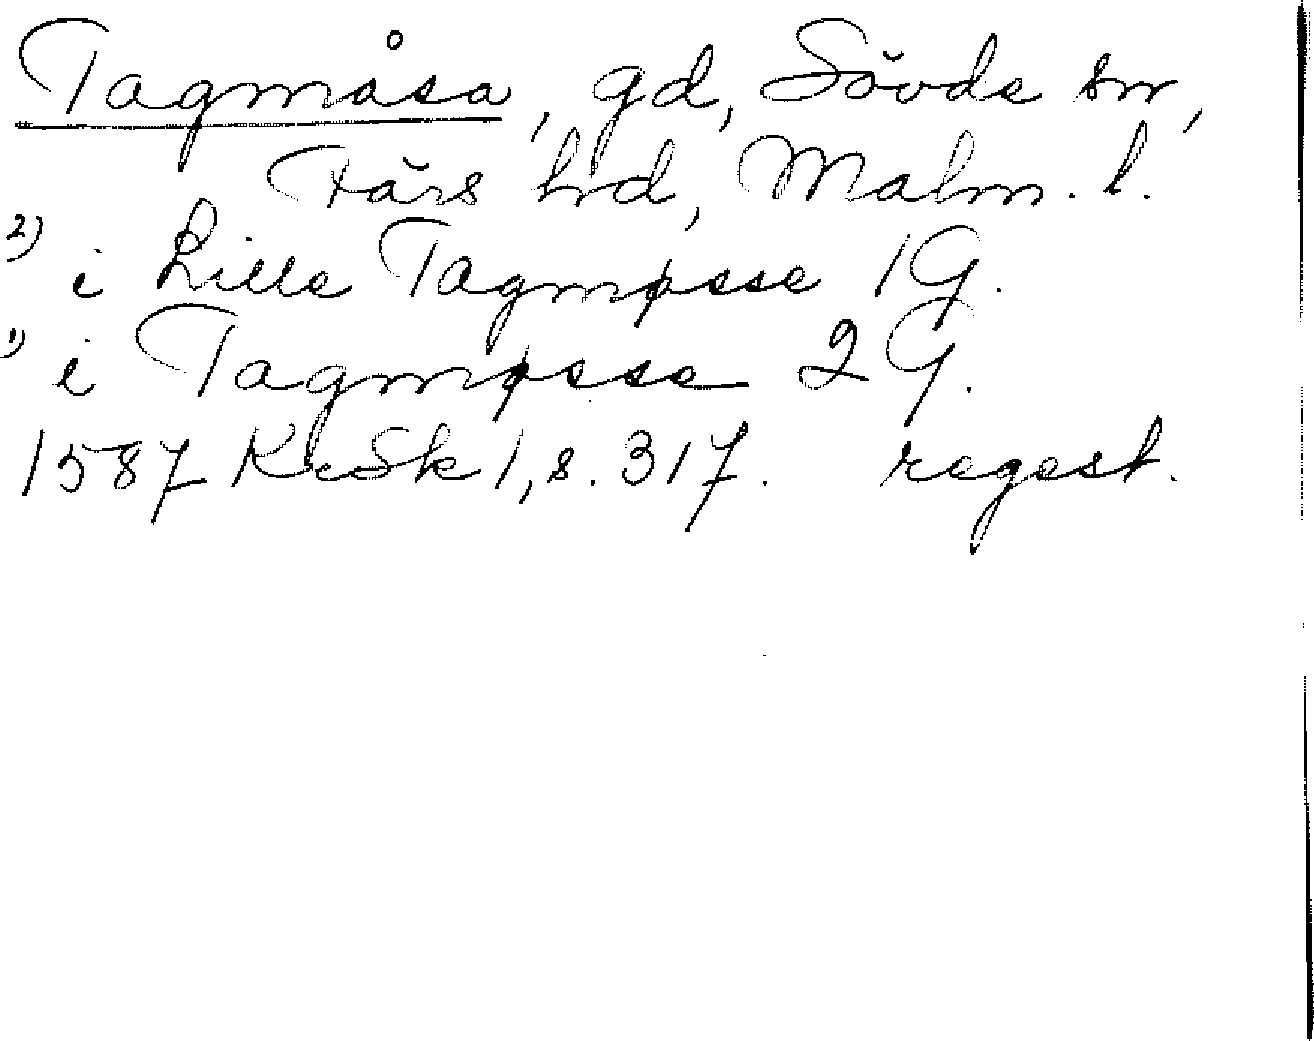 Tagmåsa, gd, Sövde sn,
Färs hd, Malm. l.
2) i Lille Tagmøsse 1 G.
1) i Tagmøsse 2 G.
1587 KrSk 1, s. 317. regest.